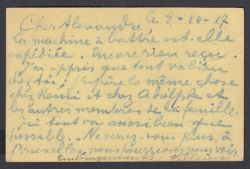 Cher Alexandre Le 2-10-17
La machine à battre est-elle
expédiée. Encore rien reçu.
J'ai appris que tout va bien
chez toi, j'espère la même chose
chez Remi et chez Adolphe et
les autres membres de la famille.
Ici tout va aussi bien que
possible. Ne venez-vous plus à
Bruxelles, nous pourrions nous voir.
Embrassements